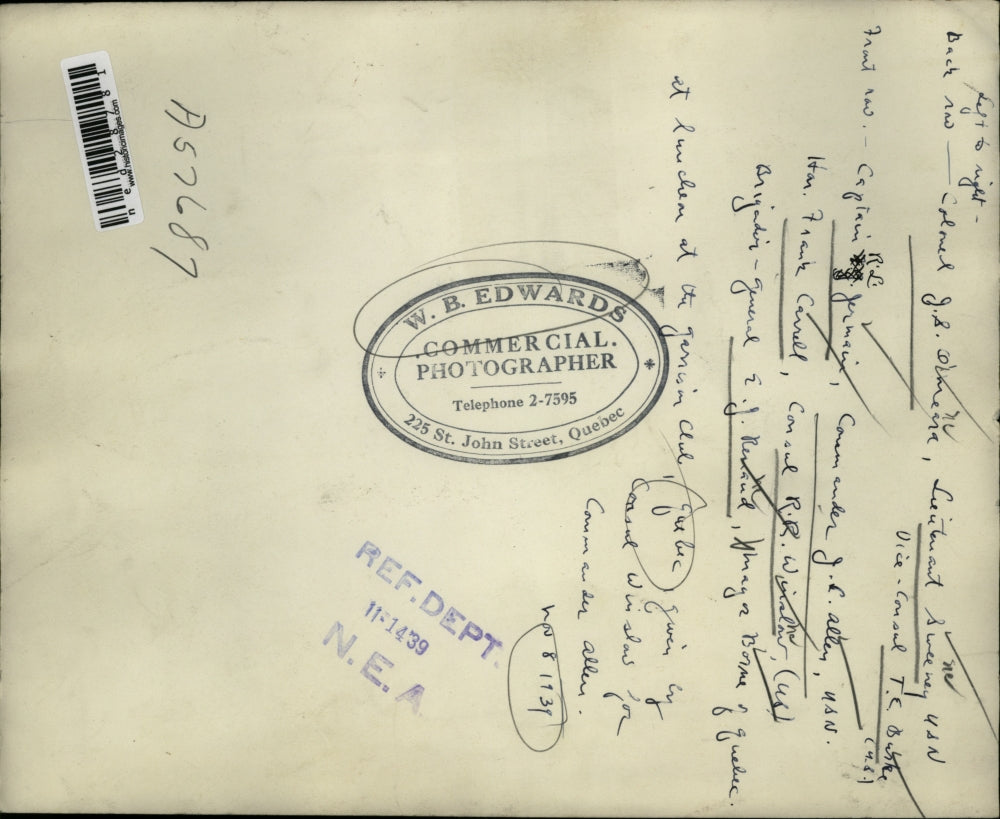 Left to right -
Back row — Colonel J.S. O'Meara, Lieutenant Sweeney USN
Vice-Consul T.E. Burke (U.S.)
Front row. - Captain R.L. Jermain, Commander J.C. Allen, USN.
Hon. Frank Carrell, Consul R.R. Winslow, (US)
Brigadier-General E.J. Renaud, Mayor Borne of Quebec.
at luncheon at the Garrison Club, Quebec, given by
Consul Winslow for
Commander Allen.
Nov 8 1939
W. B. EDWARDS
COMMERCIAL
PHOTOGRAPHER
Telephone 2-7595
225 St. John Street, Quebec
REF. DEPT.
11-14 39
N.E.A
A57687
www.historicimages.com